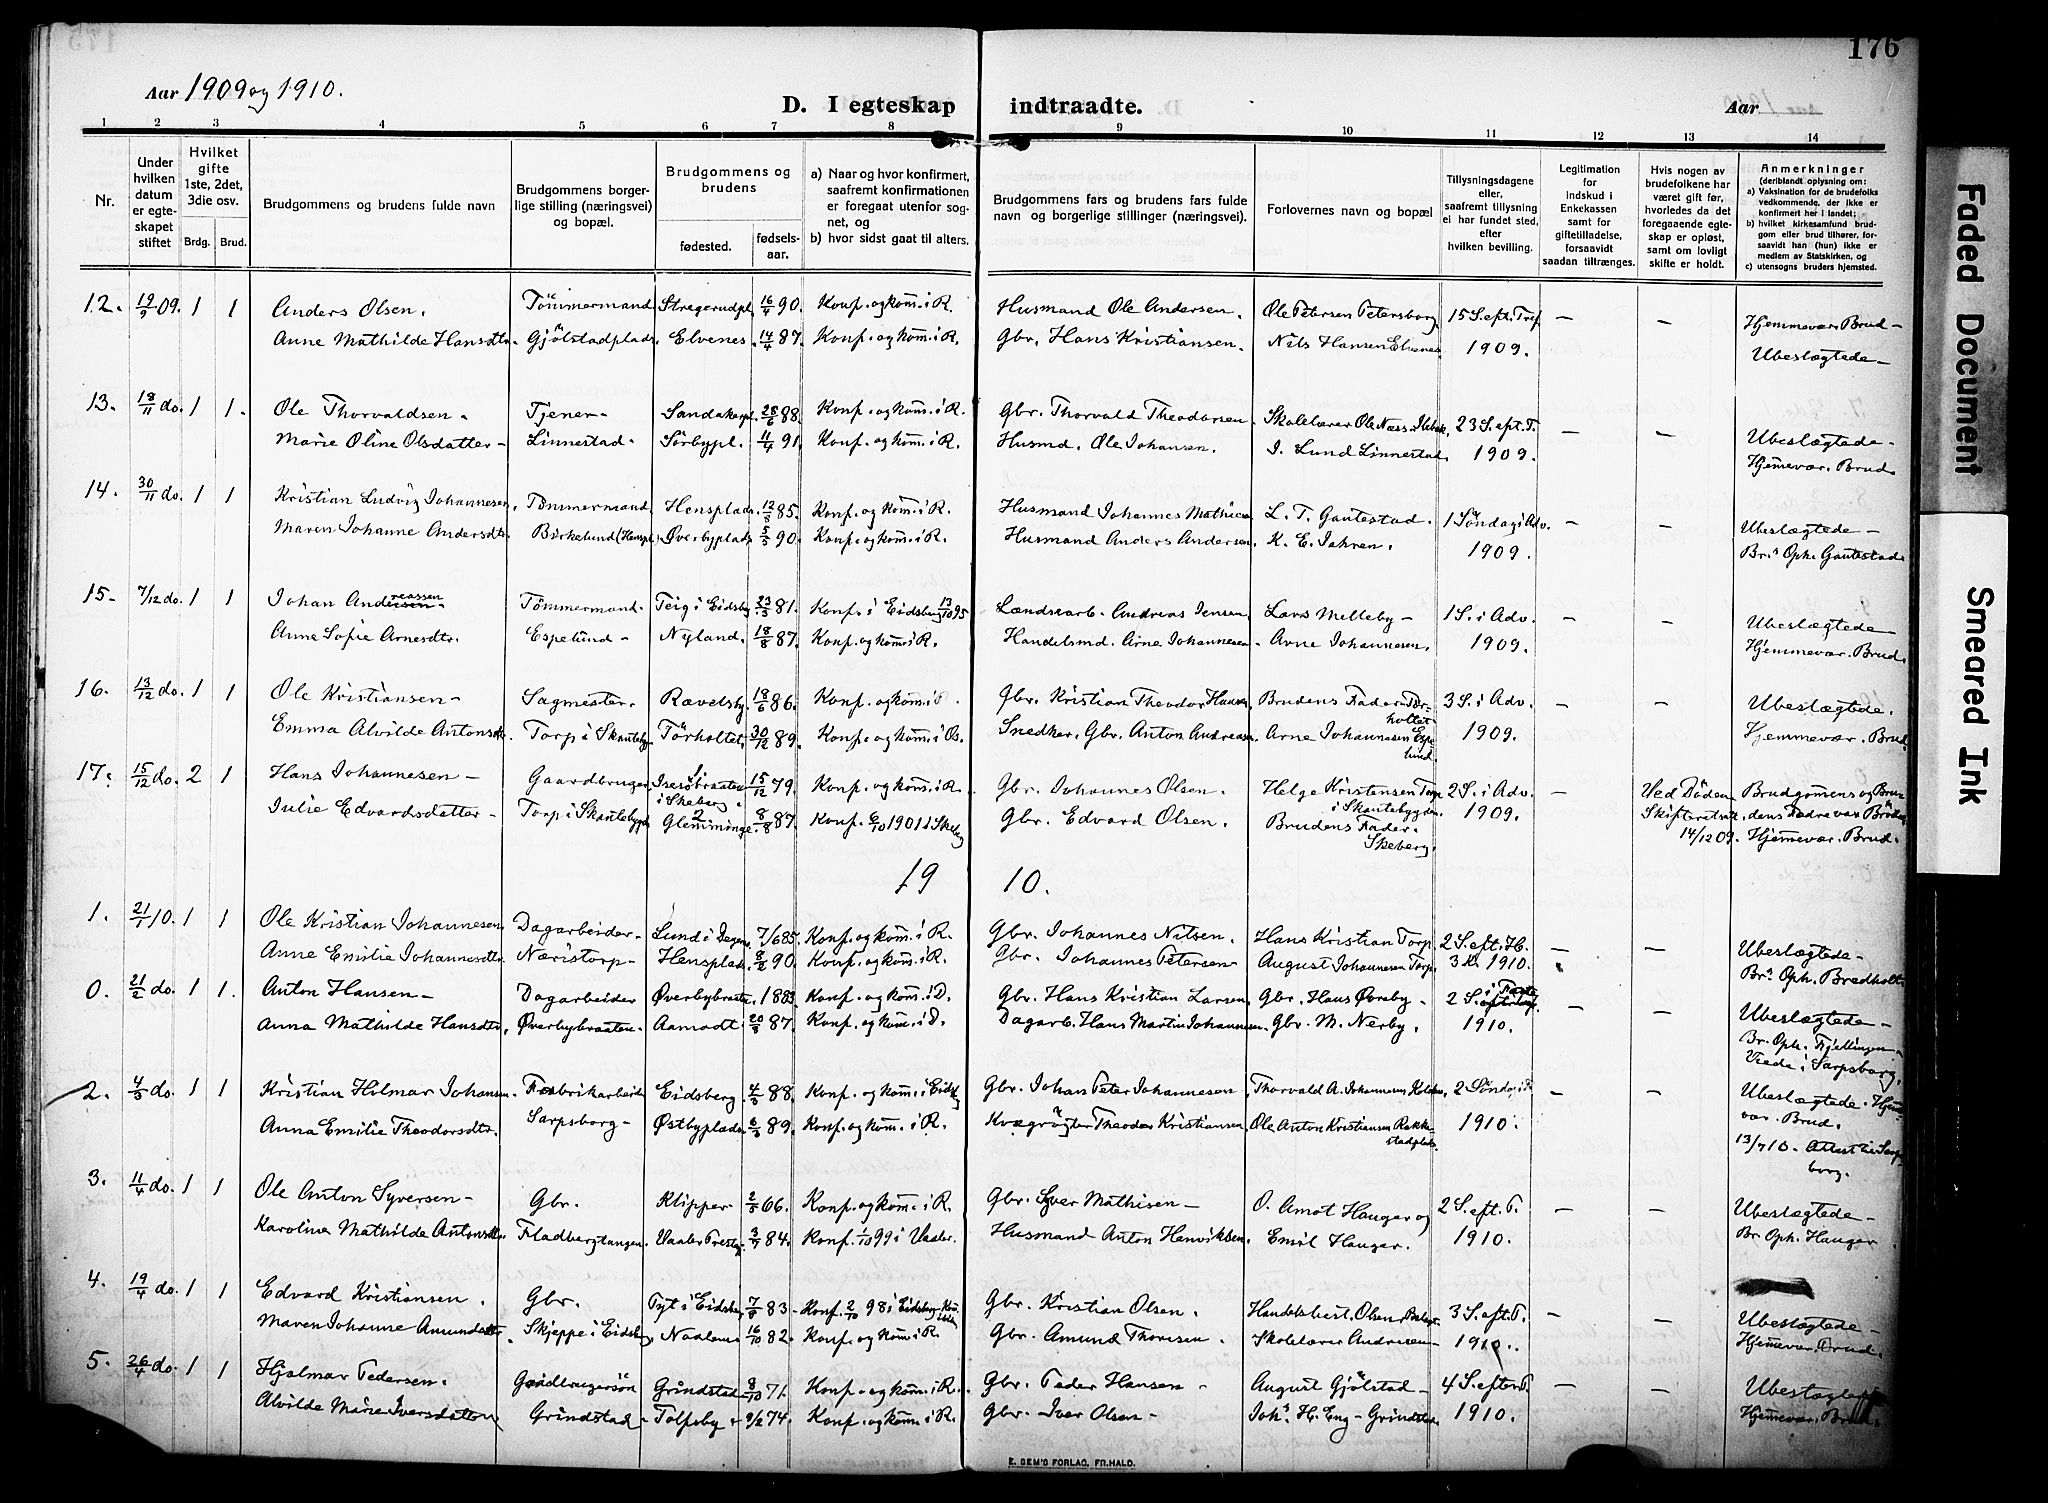 176
Aar 1909 og 1910.
D. I egteskap indtraadte.
Aar
1 2 3 4 5 6 7 8 9 10 11 12 13 14
Nr.
Under hvilken datum er egteskapet stiftet
Hvilket gifte 1ste, 2det, 3die osv.
Brdg. Brud.
Brudgommens og brudens fulde navn
Brudgommens borgerlige stilling (næringsvei) og bopæl.
Brudgommens og brudens
fødested. fødselsaar.
a) Naar og hvor konfirmert, saafremt konfirmationen er foregaat utenfor sognet, og
b) hvor sidst gaat til alters.
Brudgommens fars og brudens fars fulde navn og borgerlige stillinger (næringsvei).
Forlovernes navn og bopæl
Tillysningsdagene eller, saafremt tillysning ei har fundet sted, efter hvilken bevilling.
Legitimation for indskud i Enkekassen samt for giftetilladelse, forsaavidt saadan tiltrænges.
Hvis nogen av brudefolkene har været gift før, hvorledes da det foregaaende egteskap er opløst, samt om lovligt skifte er holdt.
Anmerkninger (deriblandt oplysning om:
a) Vaksination for de brudefolks vedkommende, der ikke er konfirmert her i landet;
b) hvilket kirkesamfund brudgom eller brud tilhører, forsaavidt han (hun) ikke er medlem av Statskirken, og
c) utensogns bruders hjemsted.
12. 19/9 09. 1 1 Anders Olsen. Tömmermand Stregerudpl. 16/4 90. Konf. og kom. i R. Husmand Ole Andersen. Ole Petersen Petersborg. 15 S. eft. Tref. — — Hjemmevær. Brud —
Anne Mathilde Hansdtr. Gjölstadplads. Elvenes. 14/4 87. Konf. og kom. i R. Gbr. Hans Kristiansen. Nils Hansen Elvenes 1909. Ubeslægtede —
13. 18/11 do. 1 1. Ole Thorvaldsen. Tjener — 28/6 88. Konf. og kom. i R. Gbr. Thorvald Theodorsen Skolelærer Ole Næss 23 S. eft. T. — — Ubeslægtede —
Marie Oline Olsdatter — Linnestad — Sörbypl. 11/4 91. Konf. og kom. i R. Husmd. Ole Johansen. I. Lund Linnestad. 1909. Hjemmevær. Brud.
14. 30/11 do. 1 1 Kristian Ludvig Johannesen. Tömmermand Hensplads. 12/8 85. Konf. og kom. i R. Husmand Johannes L. T. Gautestad. 1 Söndag i Adv. — — Ubeslægtede —
Maren Johanne Andersdtr. Birkelund (Henspl.) Øverbyplads. 5/5 90. Konf. og kom. i R. Husmand Anders Andersen. K. E. Jahren. 1909. Br.s Oph. Gautestad
15 — 7/12 do. 1 1 Johan Andreassen — Tömmermand — Teig i Eidsbg. 23/3 81. Konf. i Eidsberg 13/10 95 Landsarb. Andreas Jensen Lars Melleby — 1 S. i Adv. — — Ubeslægtede
Anne Sofie Arnesdtr. Espelund — Nyland. 18/8 87. Konf. og kom. i R. Handelsmd. Arne Johannesen — Arne Johannesen. 1909. Hjemmevær. Brud.
16. 13/12 do. 1 1 Ole Kristiansen — Sagmester. Rævelsby 18/6 86. Konf. og kom. i R. Gbr. Kristian Theodor Hansen Brudens Fader Torholtet. 3 S. i Adv. — — Ubeslægtede.
Emma Alvilde Antonsdtr. Torp i Skauteby. Torholtet. 30/12 89. Konf. og kom. i Os. Snedker, Gbr. Anton Andreasen Arne Johannesen Espelund. 1909. Hjemmevær. Brud
17. 15/12 do. 2 1 Hans Johannesen — Gaardbruger i Skeberg. 15/12 79. Konf. og kom. i R. Gbr. Johannes Olsen. Helge Kristensen Torp i Skautebygden. 2 S. i Adv. — Ved Döden Brudgommens og Brudens Fædre var Brödre
Julie Edvardsdatter — Torp i Skautebygd. Glemminge. 8/8 87. Konf. 6/10 1901 i Skeberg Gbr. Edvard Olsen. Brudens Fader. Skeberg. 1909. Skifteretsatt. 14/12 09. Hjemmevær. Brud.
1910.
1. 21/1 10. 1 1 Ole Kristian Johannesen Dagarbeider — Lund i Degernes 7/6 85. Konf. og kom. i R. Gbr. Johannes Nilsen. Hans Kristian Torp. 2 S. eft. H. 3 K. — — Ubeslægtede —
Anne Emilie Johannesdtr. Næristorp — Hensplads. 8/2 90. Konf. og kom. i R. Gbr. Johannes Petersen — August Johannesen Torp. 1910. Br.s Oph. Bredholt
0. 21/2 do. 1 1. Anton Hansen — Dagarbeider Øverbybraaten. 1883. Konf. og kom. i D. Gbr. Hans Kristian Larsen Gbr. Hans Øvreby — 2 S. i Faste — — Ubeslægtede —
Anna Mathilde Hansdtr. Øverbybraaten — Aamodt. 20/8 87. Konf. og kom. i D. Dagarb. Hans Martin Johannesen. Gbr. M. Nerby. 1910. Br. Oph. Fjellingen Viede i Sarpsborg.
2. 4/3 do. 1 1 Kristian Hilmar Johansen. Fabrikarbeider Eidsberg. 4/3 88. Konf. og kom. i Eidsbg Gbr. Johan Peter Johannesen Thorvald A. Johannesen 2 Söndag i F. — — Ubeslægtede. Hjemmevær. Brud.
Anna Emilie Theodorsdtr. Sarpsborg — Østbyplads 6/3 89. Konf. og kom. i R. Kvægrögter Theodor Kristiansen. Ole Anton Kristiansen Rakkestadplads. 1910. 13/7 10. Attest til Sarpsborg.
3. 11/4 do. 1 1 Ole Anton Syversen — Gbr. Klipper 2/3 66. Konf. og kom. i R. Gbr. Syver Mathisen — O. Amot Hauger og 2 S. eft. P. — — Ubeslægtede —
Karoline Mathilde Antonsdtr. Fladbergtangen. Vaaler Prestg. 3/7 84. Konf. 1/10 99 i Vaaler. Husmand Anton Henriksen. Emil Hauger. 1910. Br. Oph. Hauger.
4. 19/4 do. 1 1 Edvard Kristiansen. Gbr. Tyt i Eidsberg 7/8 83 — Konf. 2/10 98 i Eidsberg Gbr. Kristian Olsen. Handelsbest. Olsen 3 S. eft. P. — — Ubeslægtede —
Maren Johanne Amundsdtr. Skjeppe i Eidsberg 16/10 82. Konf. og kom. i R. Gbr. Amund Thoresen. Skolelærer Andresen — 1910. Hjemmevær. Brud.
5. 26/4 do. 1 1 Hjalmar Pedersen. Gaardbrugersön Grindstad 8/10 71. Konf. og kom. i R. Gbr. Peder Hansen — August Gjölstad — 4 S. efter P. — — Ubeslægtede
Alvilde Marie Iversdatter Grindstad — Tolfsby. 9/2 74. Konf. og kom. i R. Gbr. Iver Olsen — Joh.s H. Eng — Grindstad. 1910. Hjemmevær. Brud.
E. SEM'S FORLAG, FR.HALD.
Faded Document
Smeared Ink